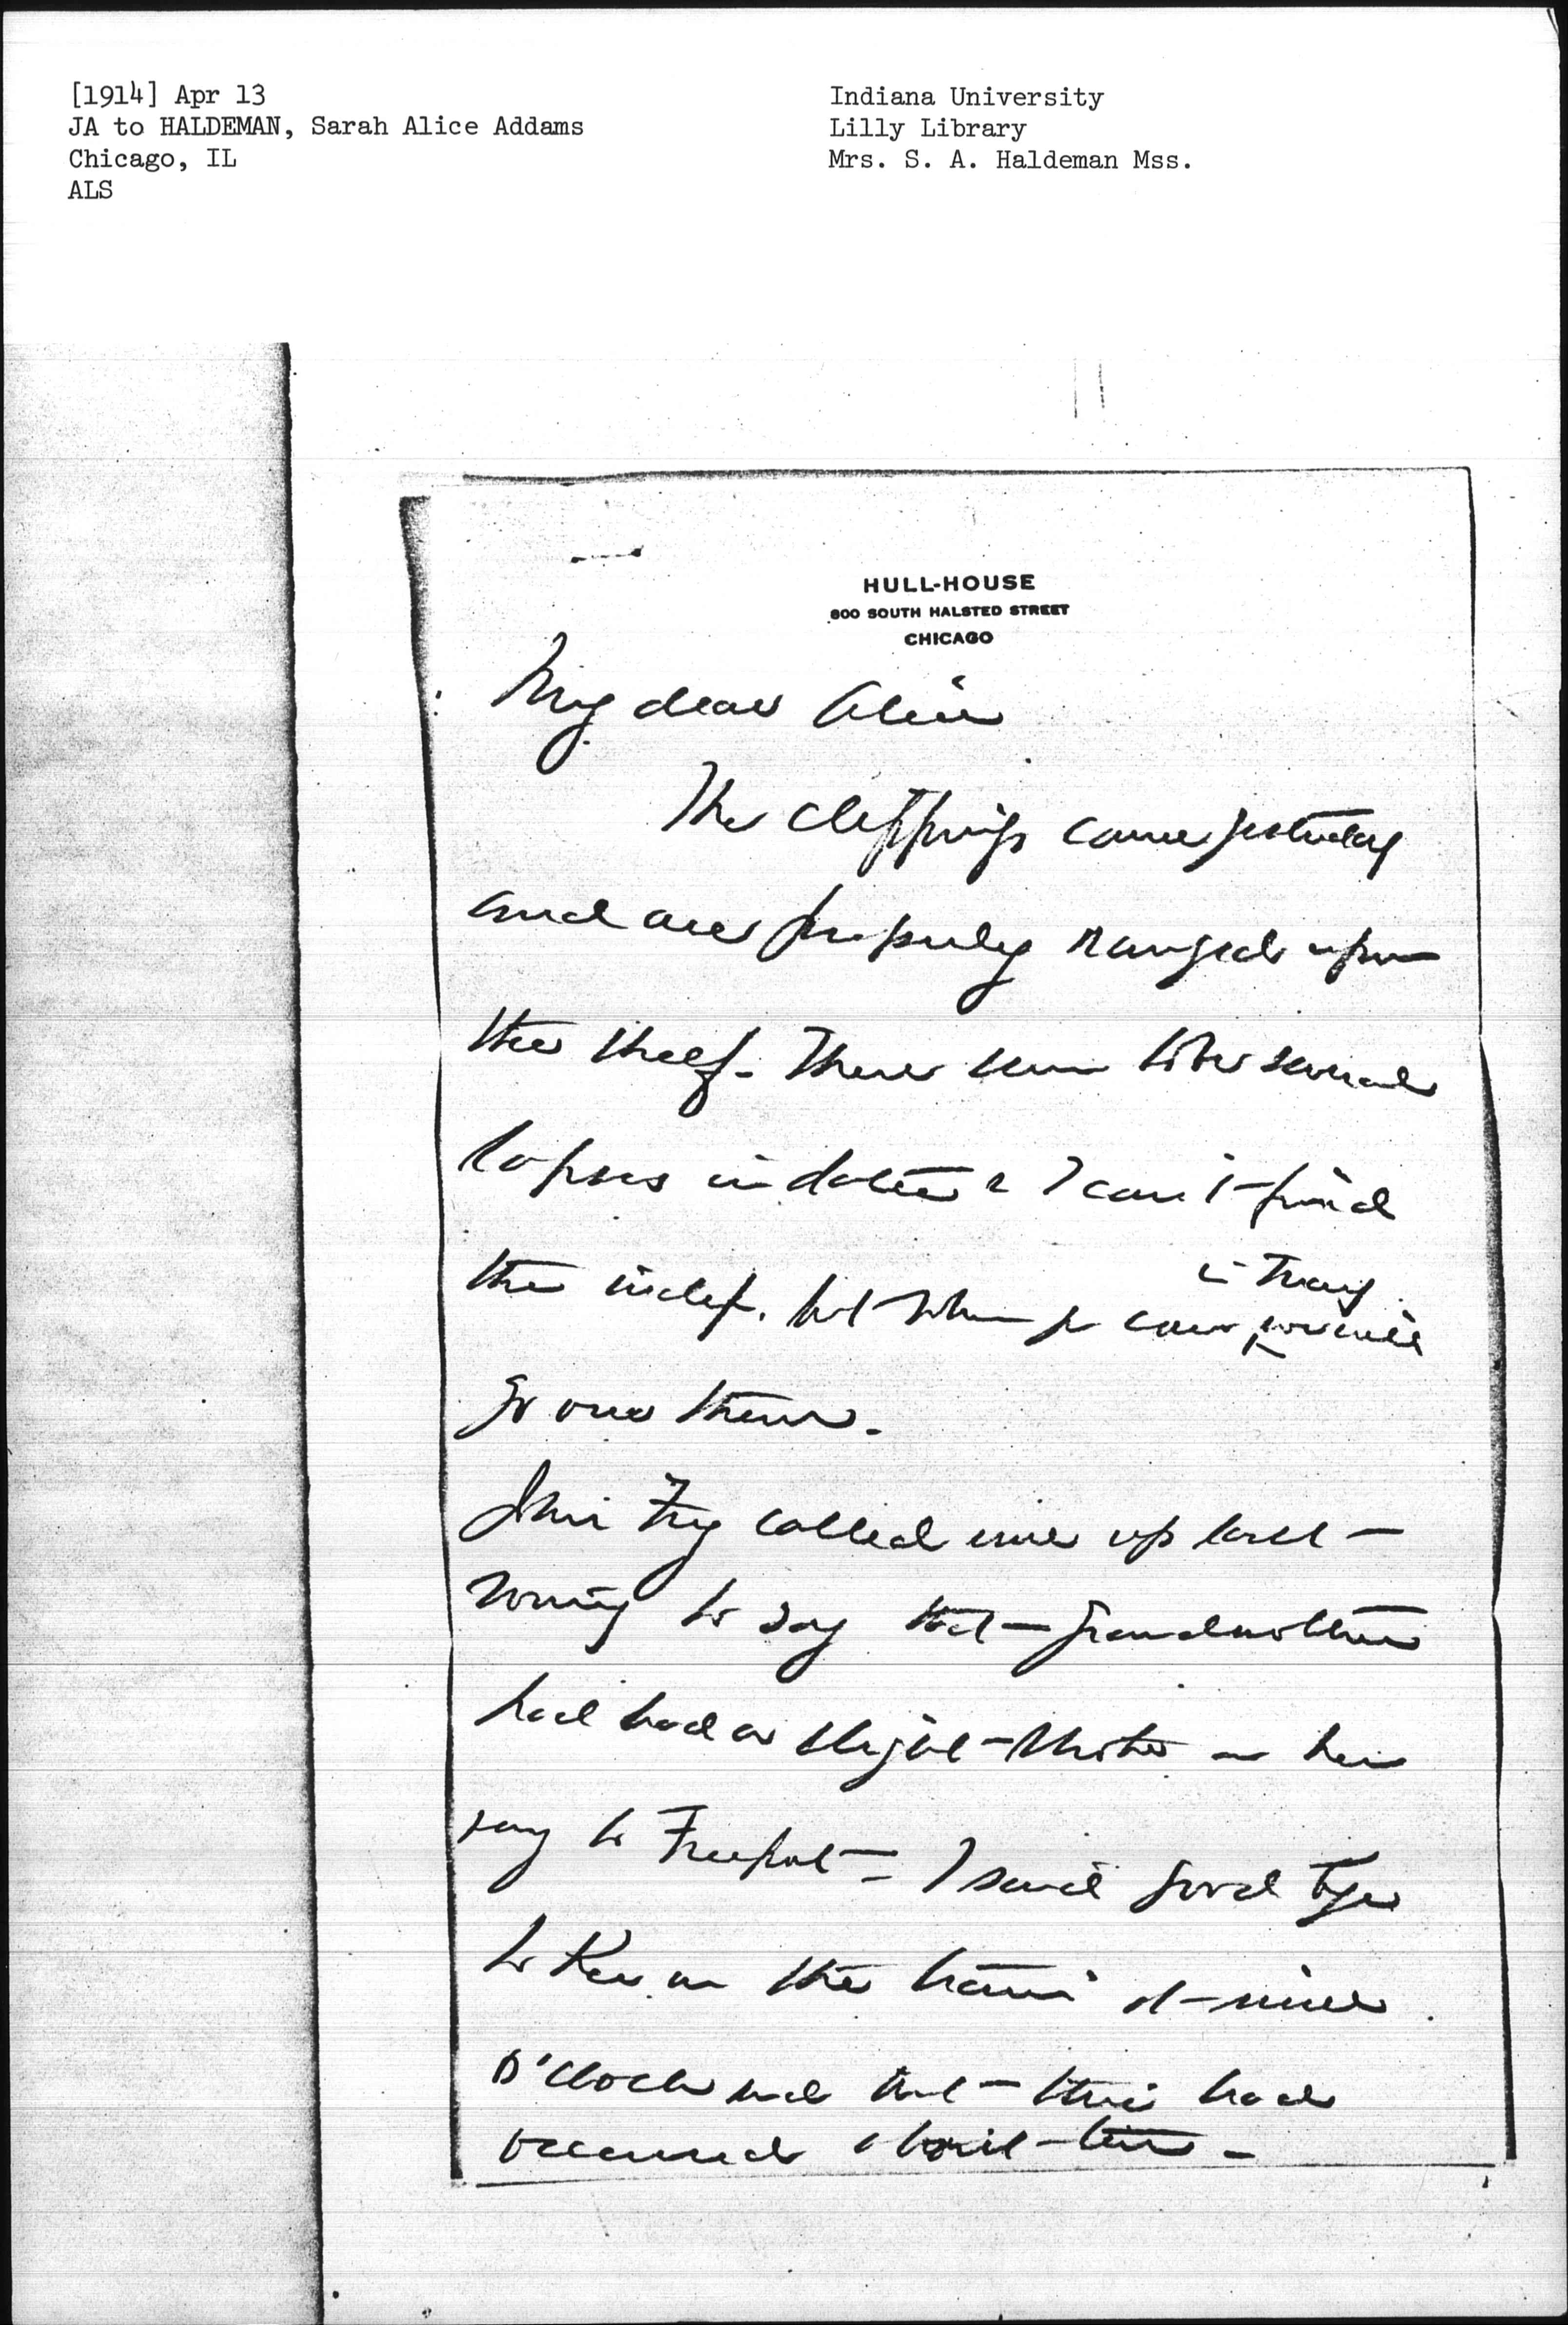 [1914] Apr 13
JA to HALDEMAN, Sarah Alice Addams
Chicago, IL
ALS
Indiana University
Lilly Library
Mrs. S. A. Haldeman Mss.
HULL-HOUSE
800 SOUTH HALSTED STREET
CHICAGO
My dear Alice
The clippings came yesterday
and are properly ranged upon
the shelf. There seem to be several
lapses in dates & I can't find
the index. but when you come in May we will
go over them.
called me up last
to say that grandmother
had had a slight stroke on her
way to Freeport = I said good bye
to her on the train at nine
o'clock and that this had
occurred about ten -